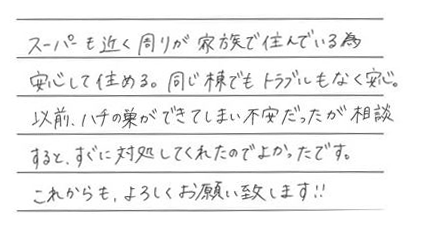 スーパーも近く周りが家族で住んでいる為
安心して住める。同じ棟でもトラブルもなく安心。
以前、ハチの巣ができてしまい不安だったが相談
すると、すぐに対処してくれたのでよかったです。
これからも、よろしくお願い致します!!